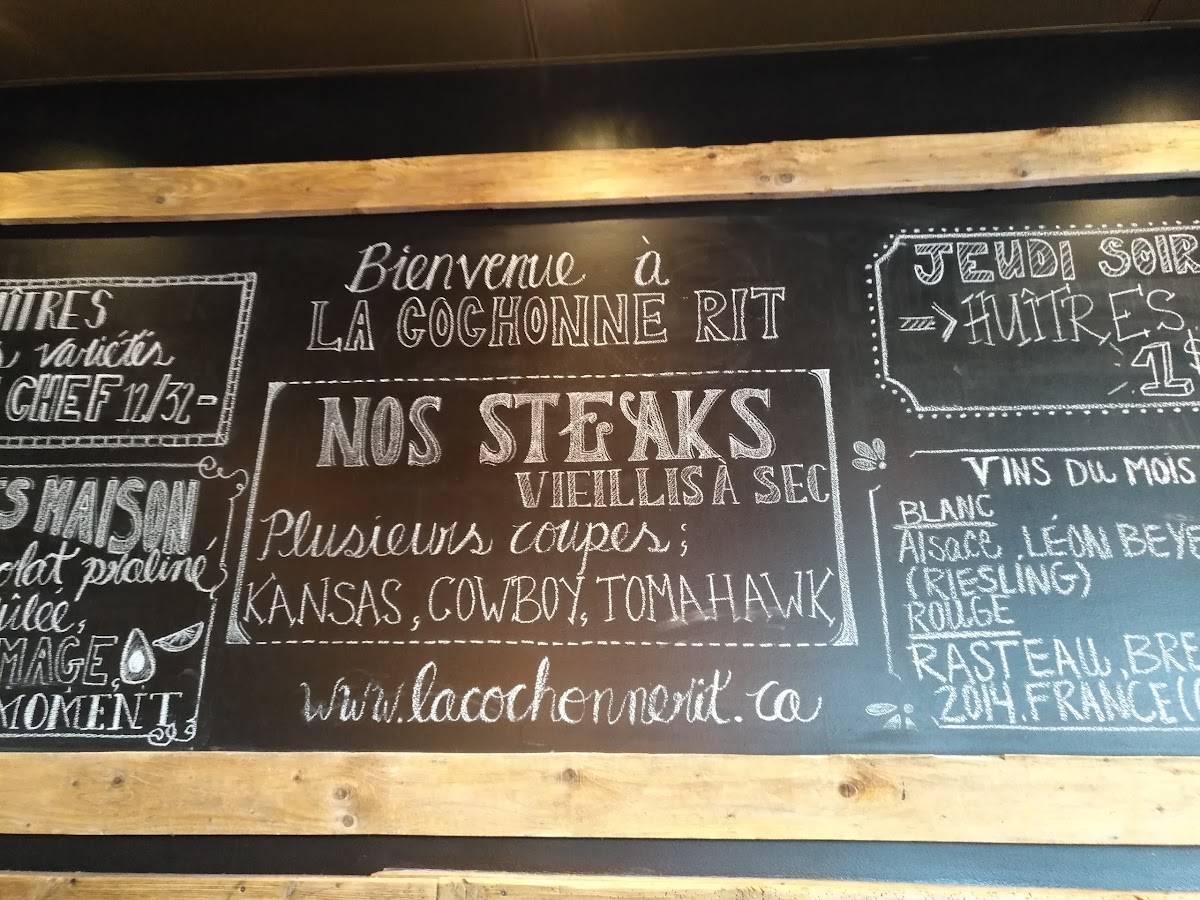 Bienvenue à
LA COCHONNE RIT
NOS STEAKS
VIEILLIS À SEC
Plusieurs coupes;
KANSAS, COWBOY, TOMAHAWK
www.lacochonnerit.ca
ÎTRES
variétés
CHEF 12/32-
MAISON
olat praliné
ûlée,
MAGE,
MOMENT
JEUDI SOIR
HUÎTRES
1$
VINS DU MOIS
BLANC
Alsace, LÉON BEYE
(RIESLING)
ROUGE
RASTEAU, BRE
2014. FRANCE (